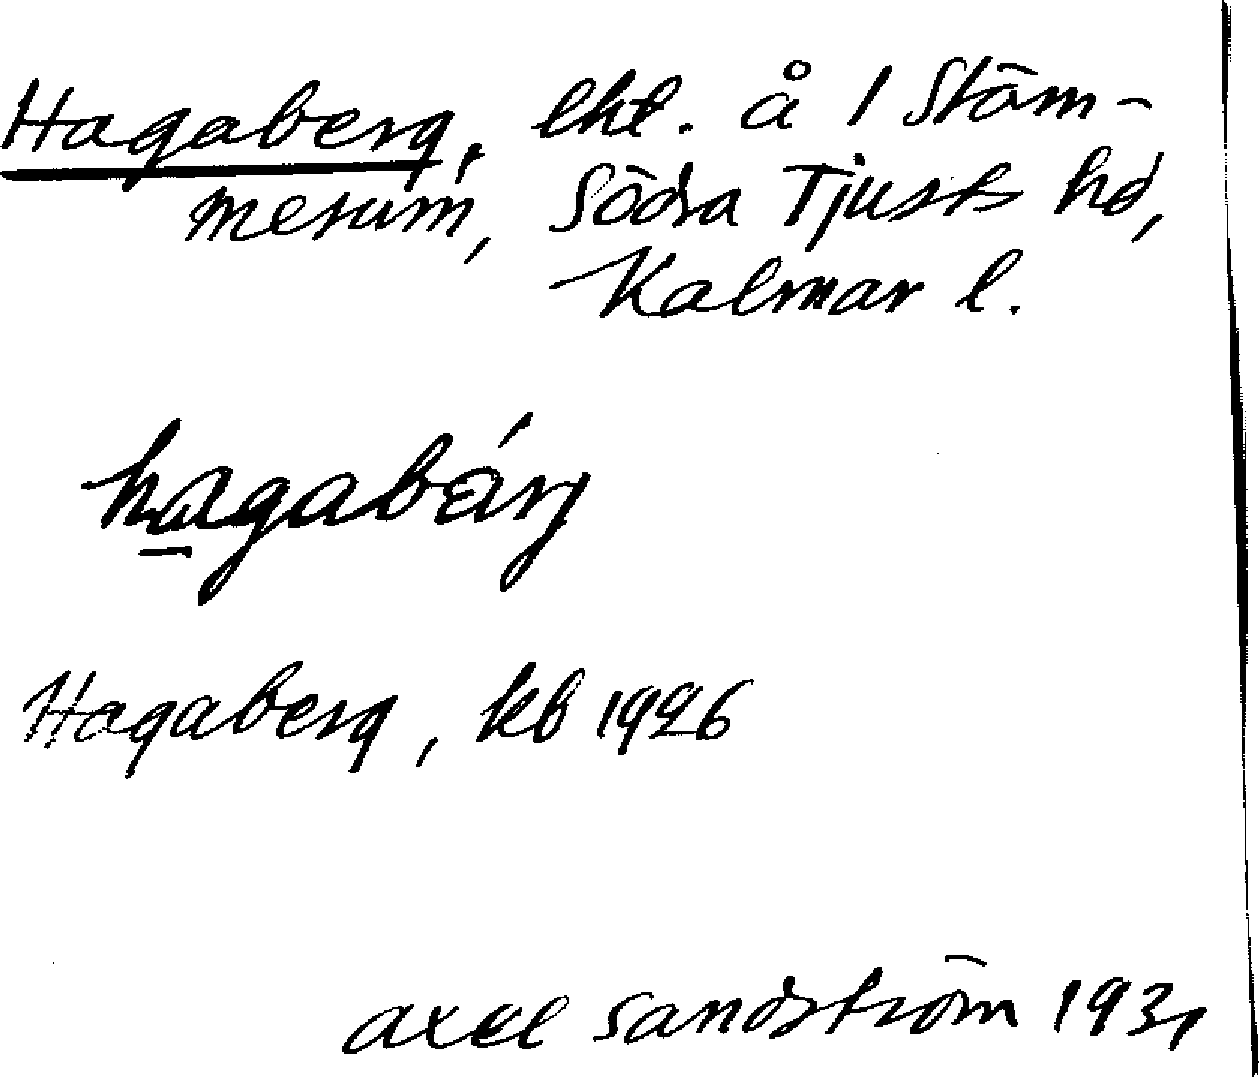 Hagaberg, lht. å 1 Stäm-
merum, Södra Tjusts hd,
Kalmar l.
hagabárj
Hagaberg, kb 1926
Axel Sandström 193